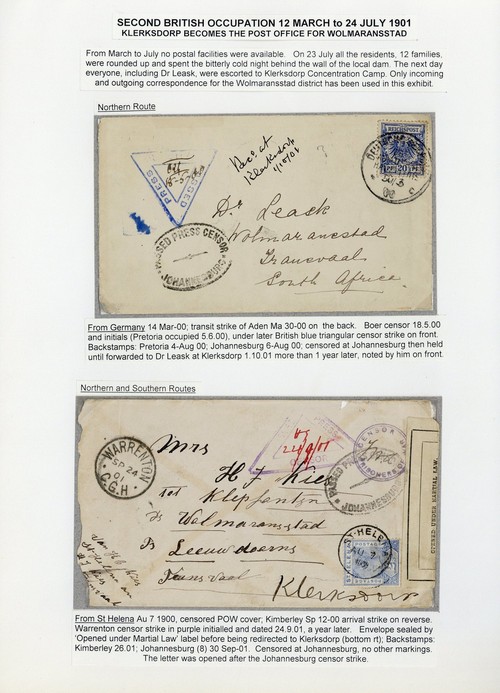 SECOND BRITISH OCCUPATION 12 MARCH to 24 JULY 1901
KLERKSDORP BECOMES THE POST OFFICE FOR WOLMARANSSTAD
From March to July no postal facilities were available. On 23 July all the residents, 12 families,
were rounded up and spent the bitterly cold night behind the wall of the local dam. The next day
everyone, including Dr Leask, were escorted to Klerksdorp Concentration Camp. Only incoming
and outgoing correspondence for the Wolmaransstad district has been used in this exhibit.
Northern Route
PASSED
PRESS
Rec. at
Klerksdorp
1/10/01
REICHSPOST
20
Dr Leask
Wolmaranstad
Transvaal
South Africa
PASSED PRESS CENSOR
JOHANNESBURG
From Germany 14 Mar-00; transit strike of Aden Ma 30-00 on the back. Boer censor 18.5.00
and initials (Pretoria occupied 5.6.00), under later British blue triangular censor strike on front.
Backstamps: Pretoria 4-Aug 00; Johannesburg 6-Aug 00; censored at Johannesburg then held
until forwarded to Dr Leask at Klerksdorp 1.10.01 more than 1 year later, noted by him on front.
Northern and Southern Routes
WARRENTON
SP 24
01
C.G.H
24/9/01
CENSOR
PRISONERS OF
PASSED PRESS
JOHANNESBURG
Mrs
H J
Klepfontein
Wolmaransstad
Leeuwdoorns
Transvaal
Klerksdorp
ST. HELENA
AU 7
OPENED UNDER MARTIAL LAW.
From St Helena Au 7 1900, censored POW cover; Kimberley Sp 12-00 arrival strike on reverse.
Warrenton censor strike in purple initialled and dated 24.9.01, a year later. Envelope sealed by
'Opened under Martial Law' label before being redirected to Klerksdorp (bottom rt); Backstamps:
Kimberley 26.01; Johannesburg (8) 30 Sep-01. Censored at Johannesburg, no other markings.
The letter was opened after the Johannesburg censor strike.